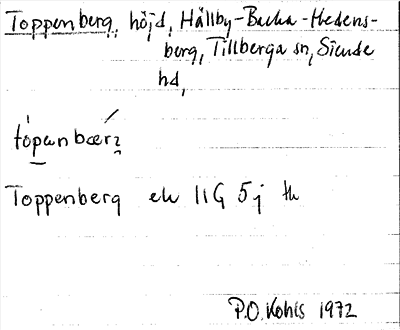 Toppenberg, höjd, Hällby-Backa-Hedens-
borg, Tillberga sn, Siende
hd,
Toppenberg ek 11G 5j
P.O. Kohls 1972